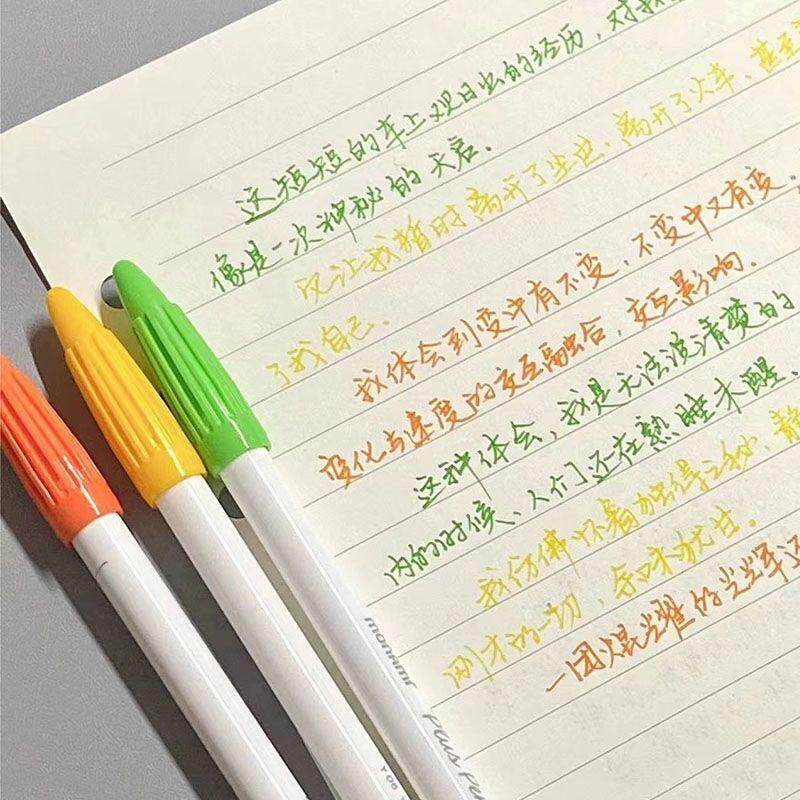 这短短的车上观日出的经历，对我
像是一次神秘的天启．
仅让我暂时离开了尘世、离开了火车、甚至
了我自己．
我体会到变中有不变，不变中又有变，
变化与速度的交互融合，交互影响．
这种体会，我是无法说清楚的
内的时候、人们还在熟睡未醒、
我仿佛怀着独得之秘，静
刚才的一切，余味犹甘．
一团焜耀的光辉
monami Plus Pen
Y06